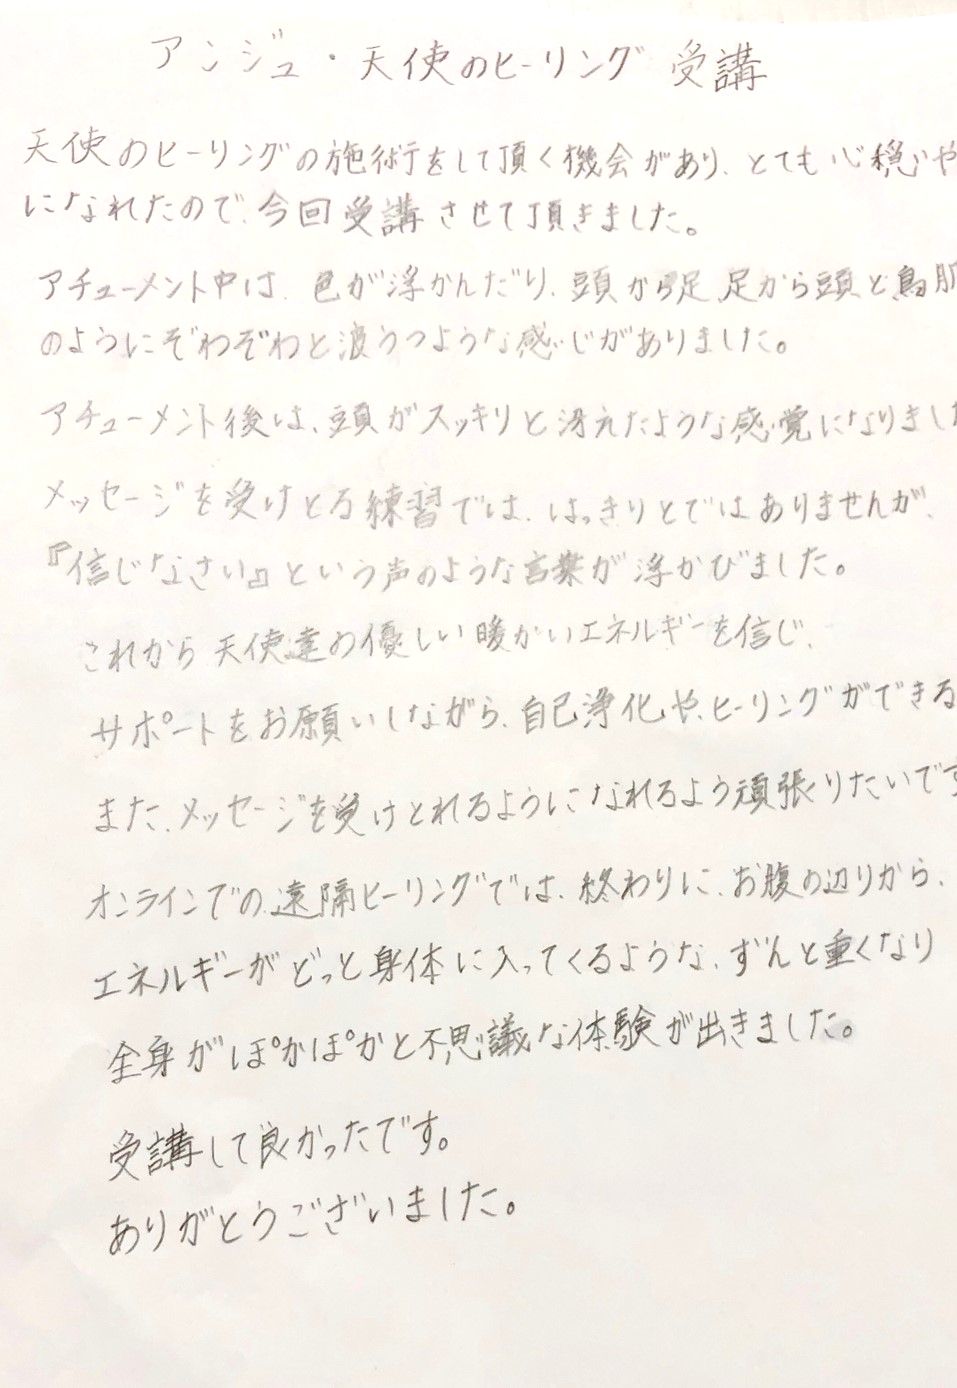 アンジュ・天使のヒーリング 受講
天使のヒーリングの施術をして頂く機会があり、とても心穏や
になれたので、今回受講させて頂きました。
アチューメント中は、色が浮かんだり、頭から足、足から頭と鳥肌
のようにぞわぞわと波うつような感じがありました。
アチューメント後は、頭がスッキリと冴えたような感覚になりました
メッセージを受けとる練習では、はっきりとではありませんが、
『信じなさい』という声のような言葉が浮かびました。
これから天使達の優しい暖かいエネルギーを信じ、
サポートをお願いしながら、自己浄化や、ヒーリングができる
また、メッセージを受けとれるようになれるよう頑張りたいです
オンラインでの遠隔ヒーリングでは、終わりに、お腹の辺りから、
エネルギーがどっと身体に入ってくるような、ずんと重くなり
全身がぽかぽかと不思議な体験が出きました。
受講して良かったです。
ありがとうございました。